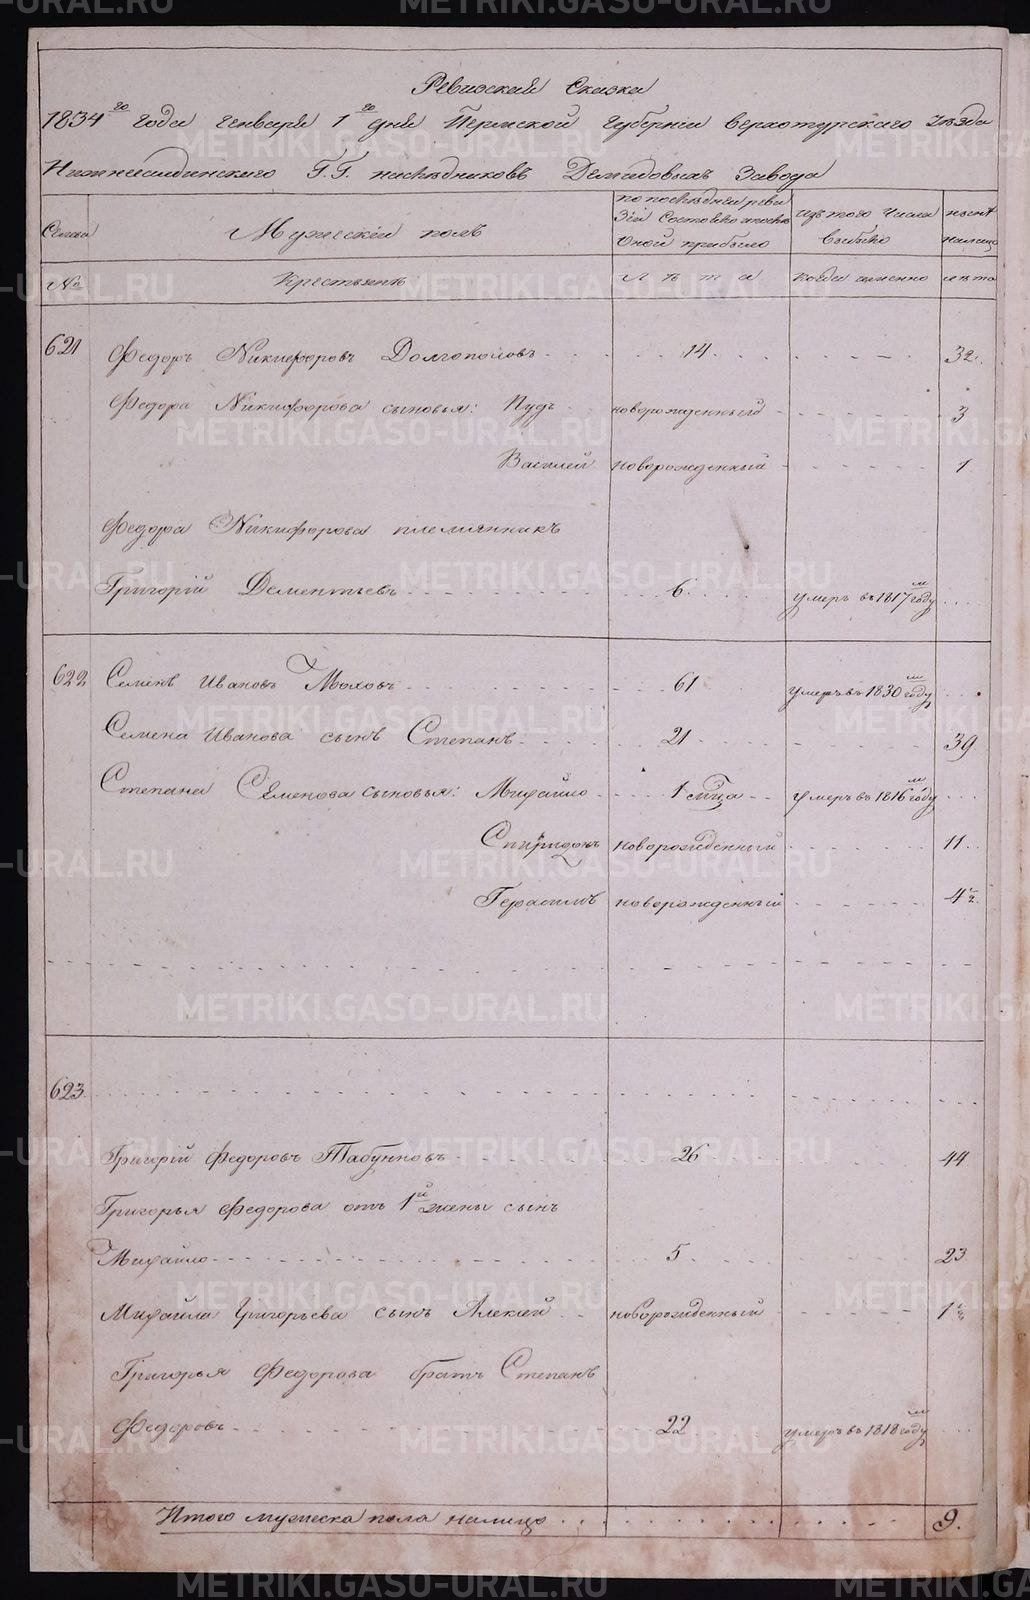 Ревизская Сказка
1834го года генваря 1го дня Пермской губернiи верхотурскаго уѣзда
Нижнесалдинскаго Г.Г. наслѣдниковъ Демидовыхъ Завода
Семьи
Мужескiй полъ
по послѣдней реви
зiи Состояло и после
оной прибыло
изъ того числа
выбыло
ныне
налицо
№
Крестьянъ
Лѣта
когда именно
лѣта
621 Федоръ Никифоровъ Долгополовъ 14. 32.
Федора Никифорова сыновья: Пудъ новорожденный 3
Василей новорожденный 1
Федора Никифорова племянникъ
Григорiй Дементьевъ 6. умеръ въ 1817м году
622 Семенъ Ивановъ Моховъ 61 умеръ въ 1830м году
Семена Иванова сынъ Степанъ 21 39
Степана Семенова сыновья: Михайло 1 мца умеръ въ 1816м году
Спиридонъ новорожденный 11
Герасимъ новорожденный 4½
623.
Григорiй Федоровъ Табунковъ 26 44
Григорья Федорова отъ 1й жены сынъ
Михайло 5 23
Михайла Григорьева сынъ Алексей новорожденный 1½
Григорья Федорова братъ Степанъ
Федоровъ 22 умеръ въ 1818м году
Итого мужеска пола налицо 9.
METRIKI.GASO-URAL.RU